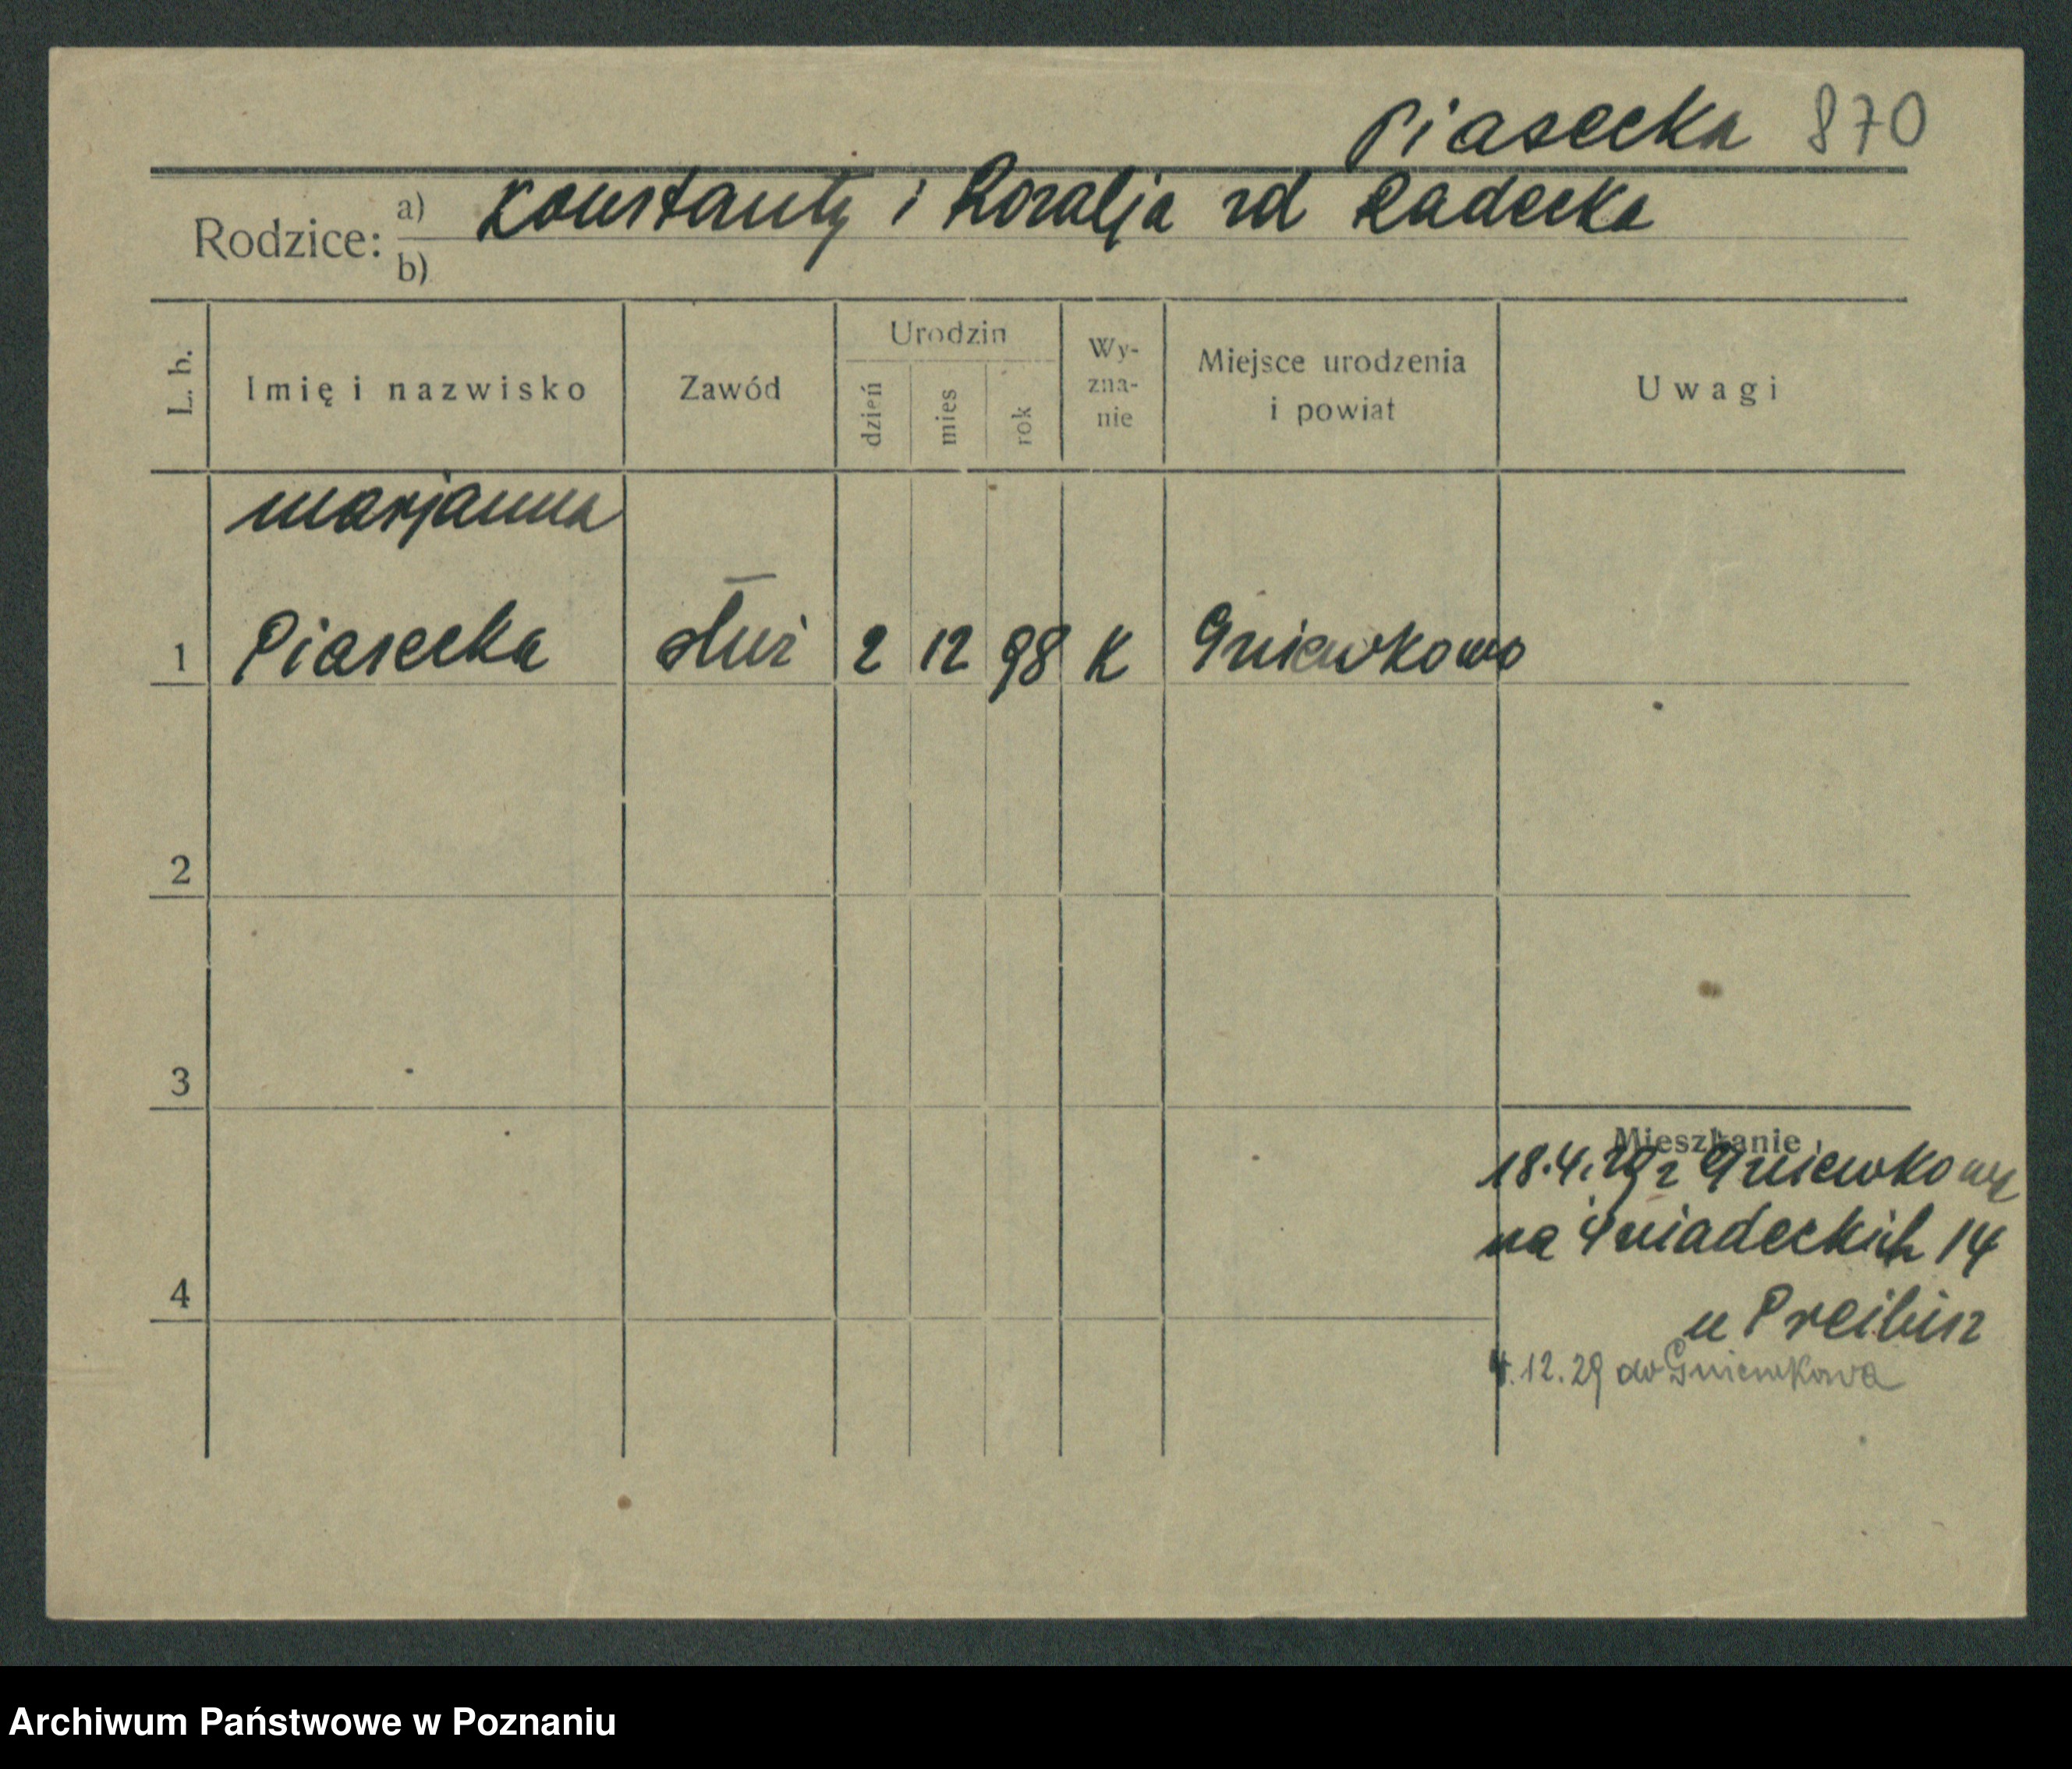 Piasecka 870
Rodzice: a) Konstanty i Rozalja rd Radecka
b)
L. b.
Imię i nazwisko
Zawód
Urodzin
dzień
mies
rok
Wy-
zna-
nie
Miejsce urodzenia
i powiat
Uwagi
Marjanna
1 Piasecka służ 2 12 98 K Gniewkowo
2
3
Mieszkanie
18.4.29 z Gniewkowa
na Śniadeckich 14
4
u Preibisz
4.12.29 do Gniewkowa
Archiwum Państwowe w Poznaniu